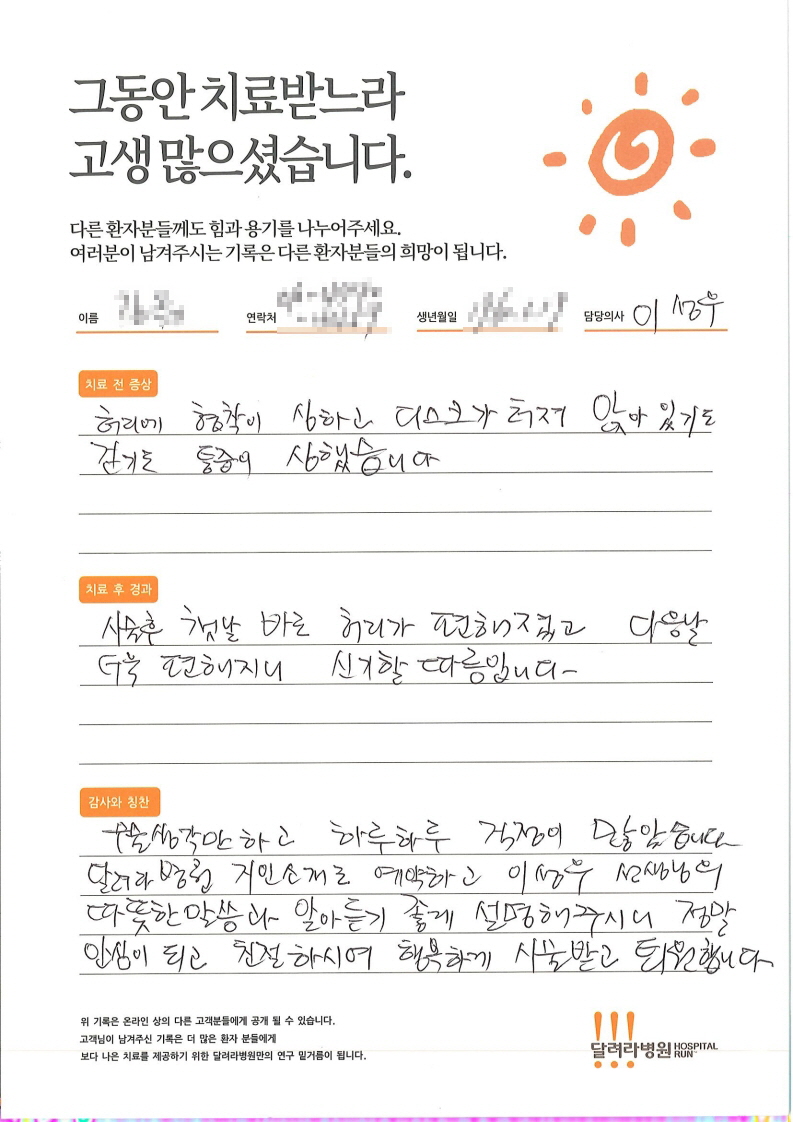 그동안 치료받느라
고생 많으셨습니다.
다른 환자분들께도 힘과 용기를 나누어주세요.
여러분이 남겨주시는 기록은 다른 환자분들의 희망이 됩니다.
이름 연락처 생년월일 담당의사 이성우
치료 전 증상
허리에 협착이 심하고 디스크가 터져 앉아 있기도
걷기도 통증이 심했습니다
치료 후 경과
시술후 첫날 바로 허리가 편해졌고 다음날
더욱 편해지니 신기할 따름입니다~
감사와 칭찬
수술생각만 하고 하루하루 걱정이 많았습니다
달려라병원 지인소개로 예약하고 이성우 선생님의
따뜻한 말씀과 알아듣기 좋게 설명해주시니 정말
안심이 되고 친절하시여 행복하게 시술받고 퇴원합니다
위 기록은 온라인 상의 다른 고객분들에게 공개 될 수 있습니다.
고객님이 남겨주신 기록은 더 많은 환자 분들에게
보다 나은 치료를 제공하기 위한 달려라병원만의 연구 밑거름이 됩니다.
!!!
달려라병원 HOSPITAL RUN